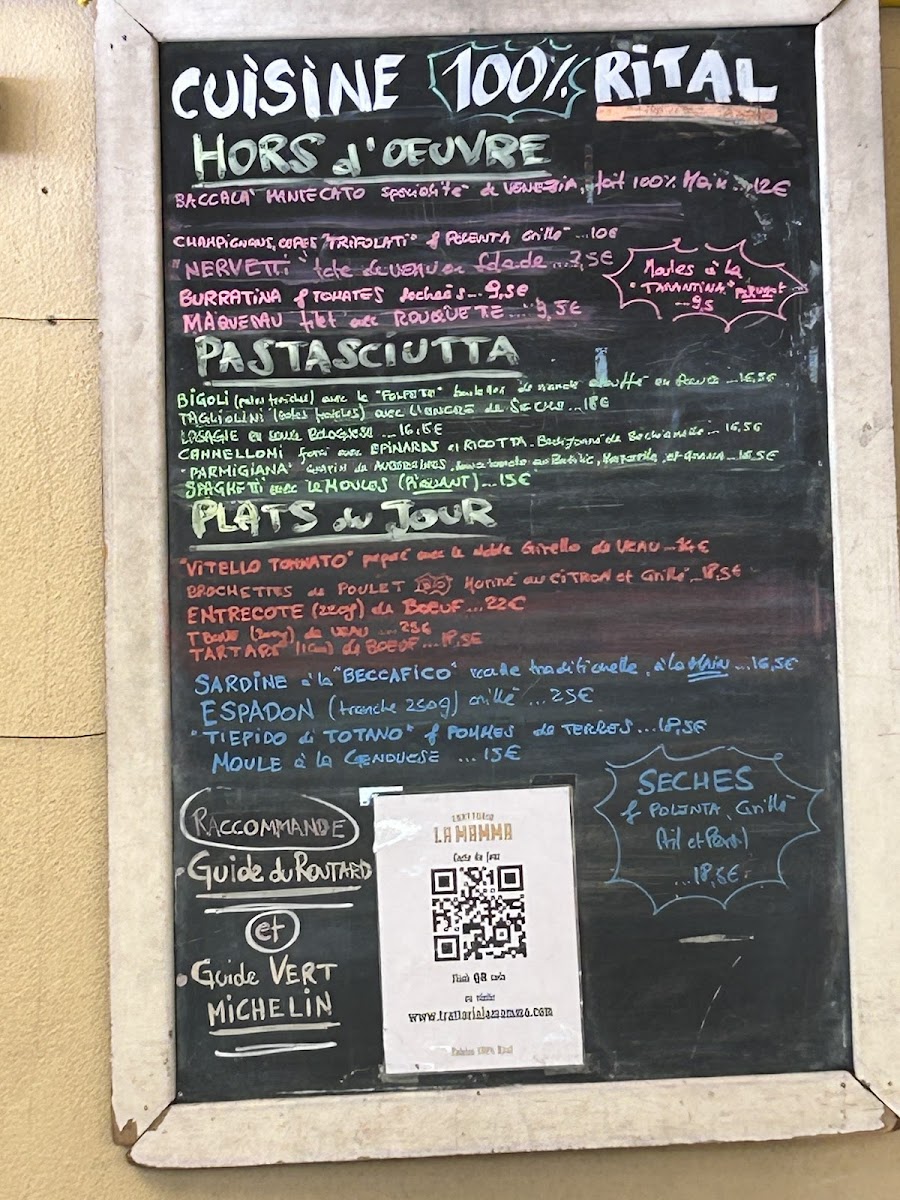 CUISINE 100% RITAL
HORS d'OEUVRE
BACCALA' MANTECATO specialité de VENEZIA, fait 100% Main ... 12€
CHAMPIGNONS, CEPES "TRIFOLATI" & POLENTA Grillé ... 10€
"NERVETTI" tete de VEAU en Salade ... 7,5€
BURRATINA & TOMATES sechées ... 9,5€
MAQUERAU filet avec ROUQUETTE ... 9,5€
Moules à la
"TARANTINA" PIQUANT
... 9,5
PASTASCIUTTA
BIGOLI (pates fraiches) avec le de viande en ... 16,5€
TAGLIOLINI (pates fraiches) avec L'ENCRE de SECHE ... 18€
LASAGNE en sauce BOLOGNESE ... 16,5€
CANNELLONI farci avec EPINARDS et RICOTTA. de Bechamelle ... 16,5€
"PARMIGIANA" GRATIN de AUBERGINES, sauce tomate au Basilic, Mozzarella, et GRANA ... 16,5€
SPAGHETTI avec le MOULES (PIQUANT) ... 15€
PLATS du JOUR
"VITELLO TONNATO" preparé avec le Noble Girello de VEAU ... 14€
BROCHETTES de POULET Mariné au CITRON et Grillé ... 18,5€
ENTRECOTE (220g) de BOEUF ... 22€
T BONE de VEAU ... 25€
TARTARE de BOEUF ... 18,5€
SARDINE à la "BECCAFICO" recette traditionelle, à la MAIN ... 16,5€
ESPADON (tranche 250g) grillé ... 25€
"TIEPIDO di TOTANO" & POMMES de TERRES ... 18,5€
MOULE à la GENOUESE ... 15€
SECHES
& POLENTA, Grillé
(Ail et Persil)
... 18,5€
RACCOMMANDE
• Guide du ROUTARD
et
• Guide VERT
MICHELIN
TRATTORIA
LA MAMMA
Carte du Jour
Flash QR code
ou visitez
www.trattorialamamma.com
Cuisine 100% Rital